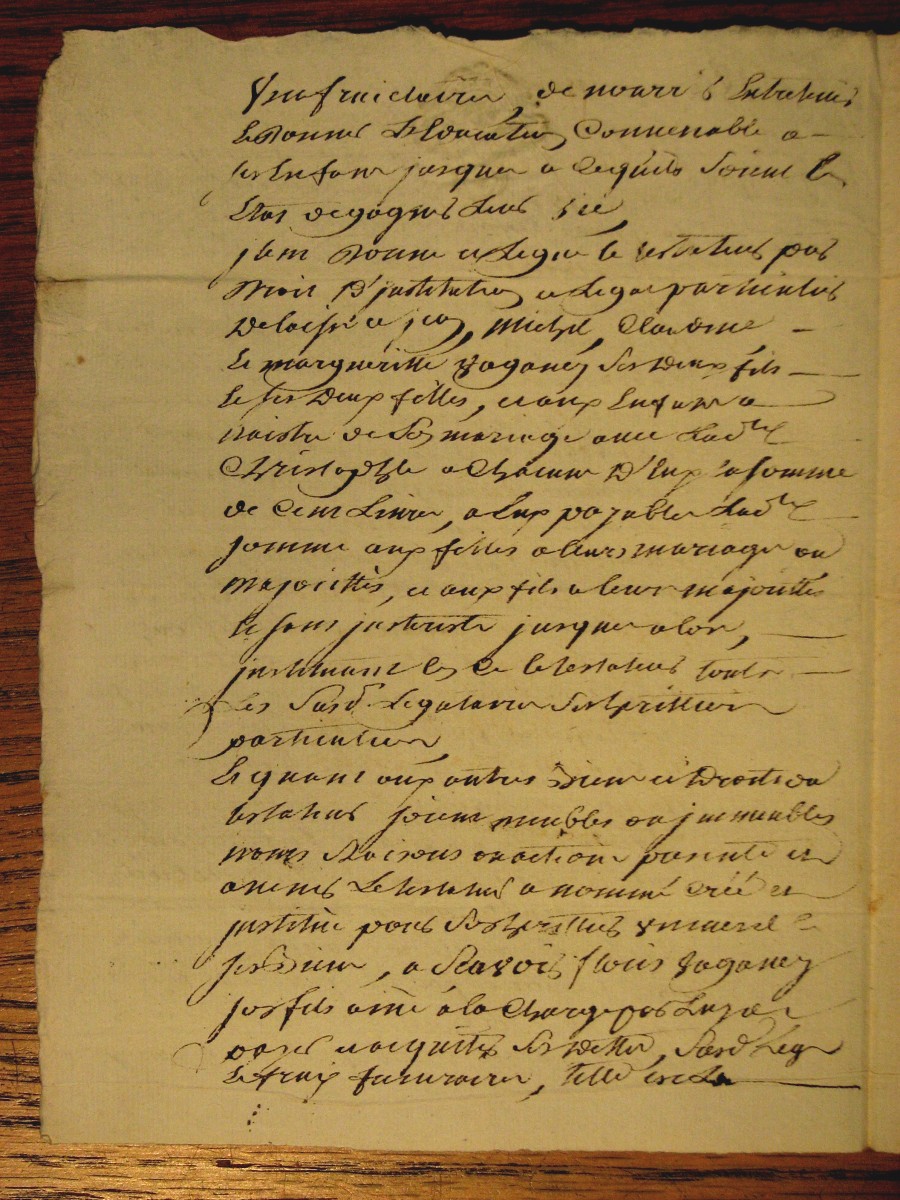 Vsufruictaires, de nourrir Entretenir
Et donner L'Education Convenable a
ses Enfans jusques a Cequils Soient En
Etat de gagner Leur vie
jtem Donne et Legue le testateur par
Droit D'jnstitution et Legat particulier
Delaissé a jean, Michel, Claudine
Et margueritte vaganey Ses Deux fils
Et ses Deux filles, et aux Enfans a
naistre de Son mariage avec Lad.te
Christophle a Chacun D'Eux la somme
de Cent Livres, a Eux payable Lad.te
somme aux filles a leurs mariage ou
majorittés, et aux fils a leur majorittés
Et sans jnterests jusques alors,
jnstituant les Ce le testateur toutes
Les Susd. Legataires Ses heritiers
particuliers
Et quant aux autres Biens et Droits du
testateur soient meubles ou jmmeubles
noms Raisons ou actions presents et
avenir Le testateur a nommé Créé et
jnstitué pour Son heritier vniversel
, a Scavoir vaganey
son fils aîné a la Charge par Luy de
payer et acquitter Ses Dettes, Susd. Legs
Et fraix funeraires, telle est La